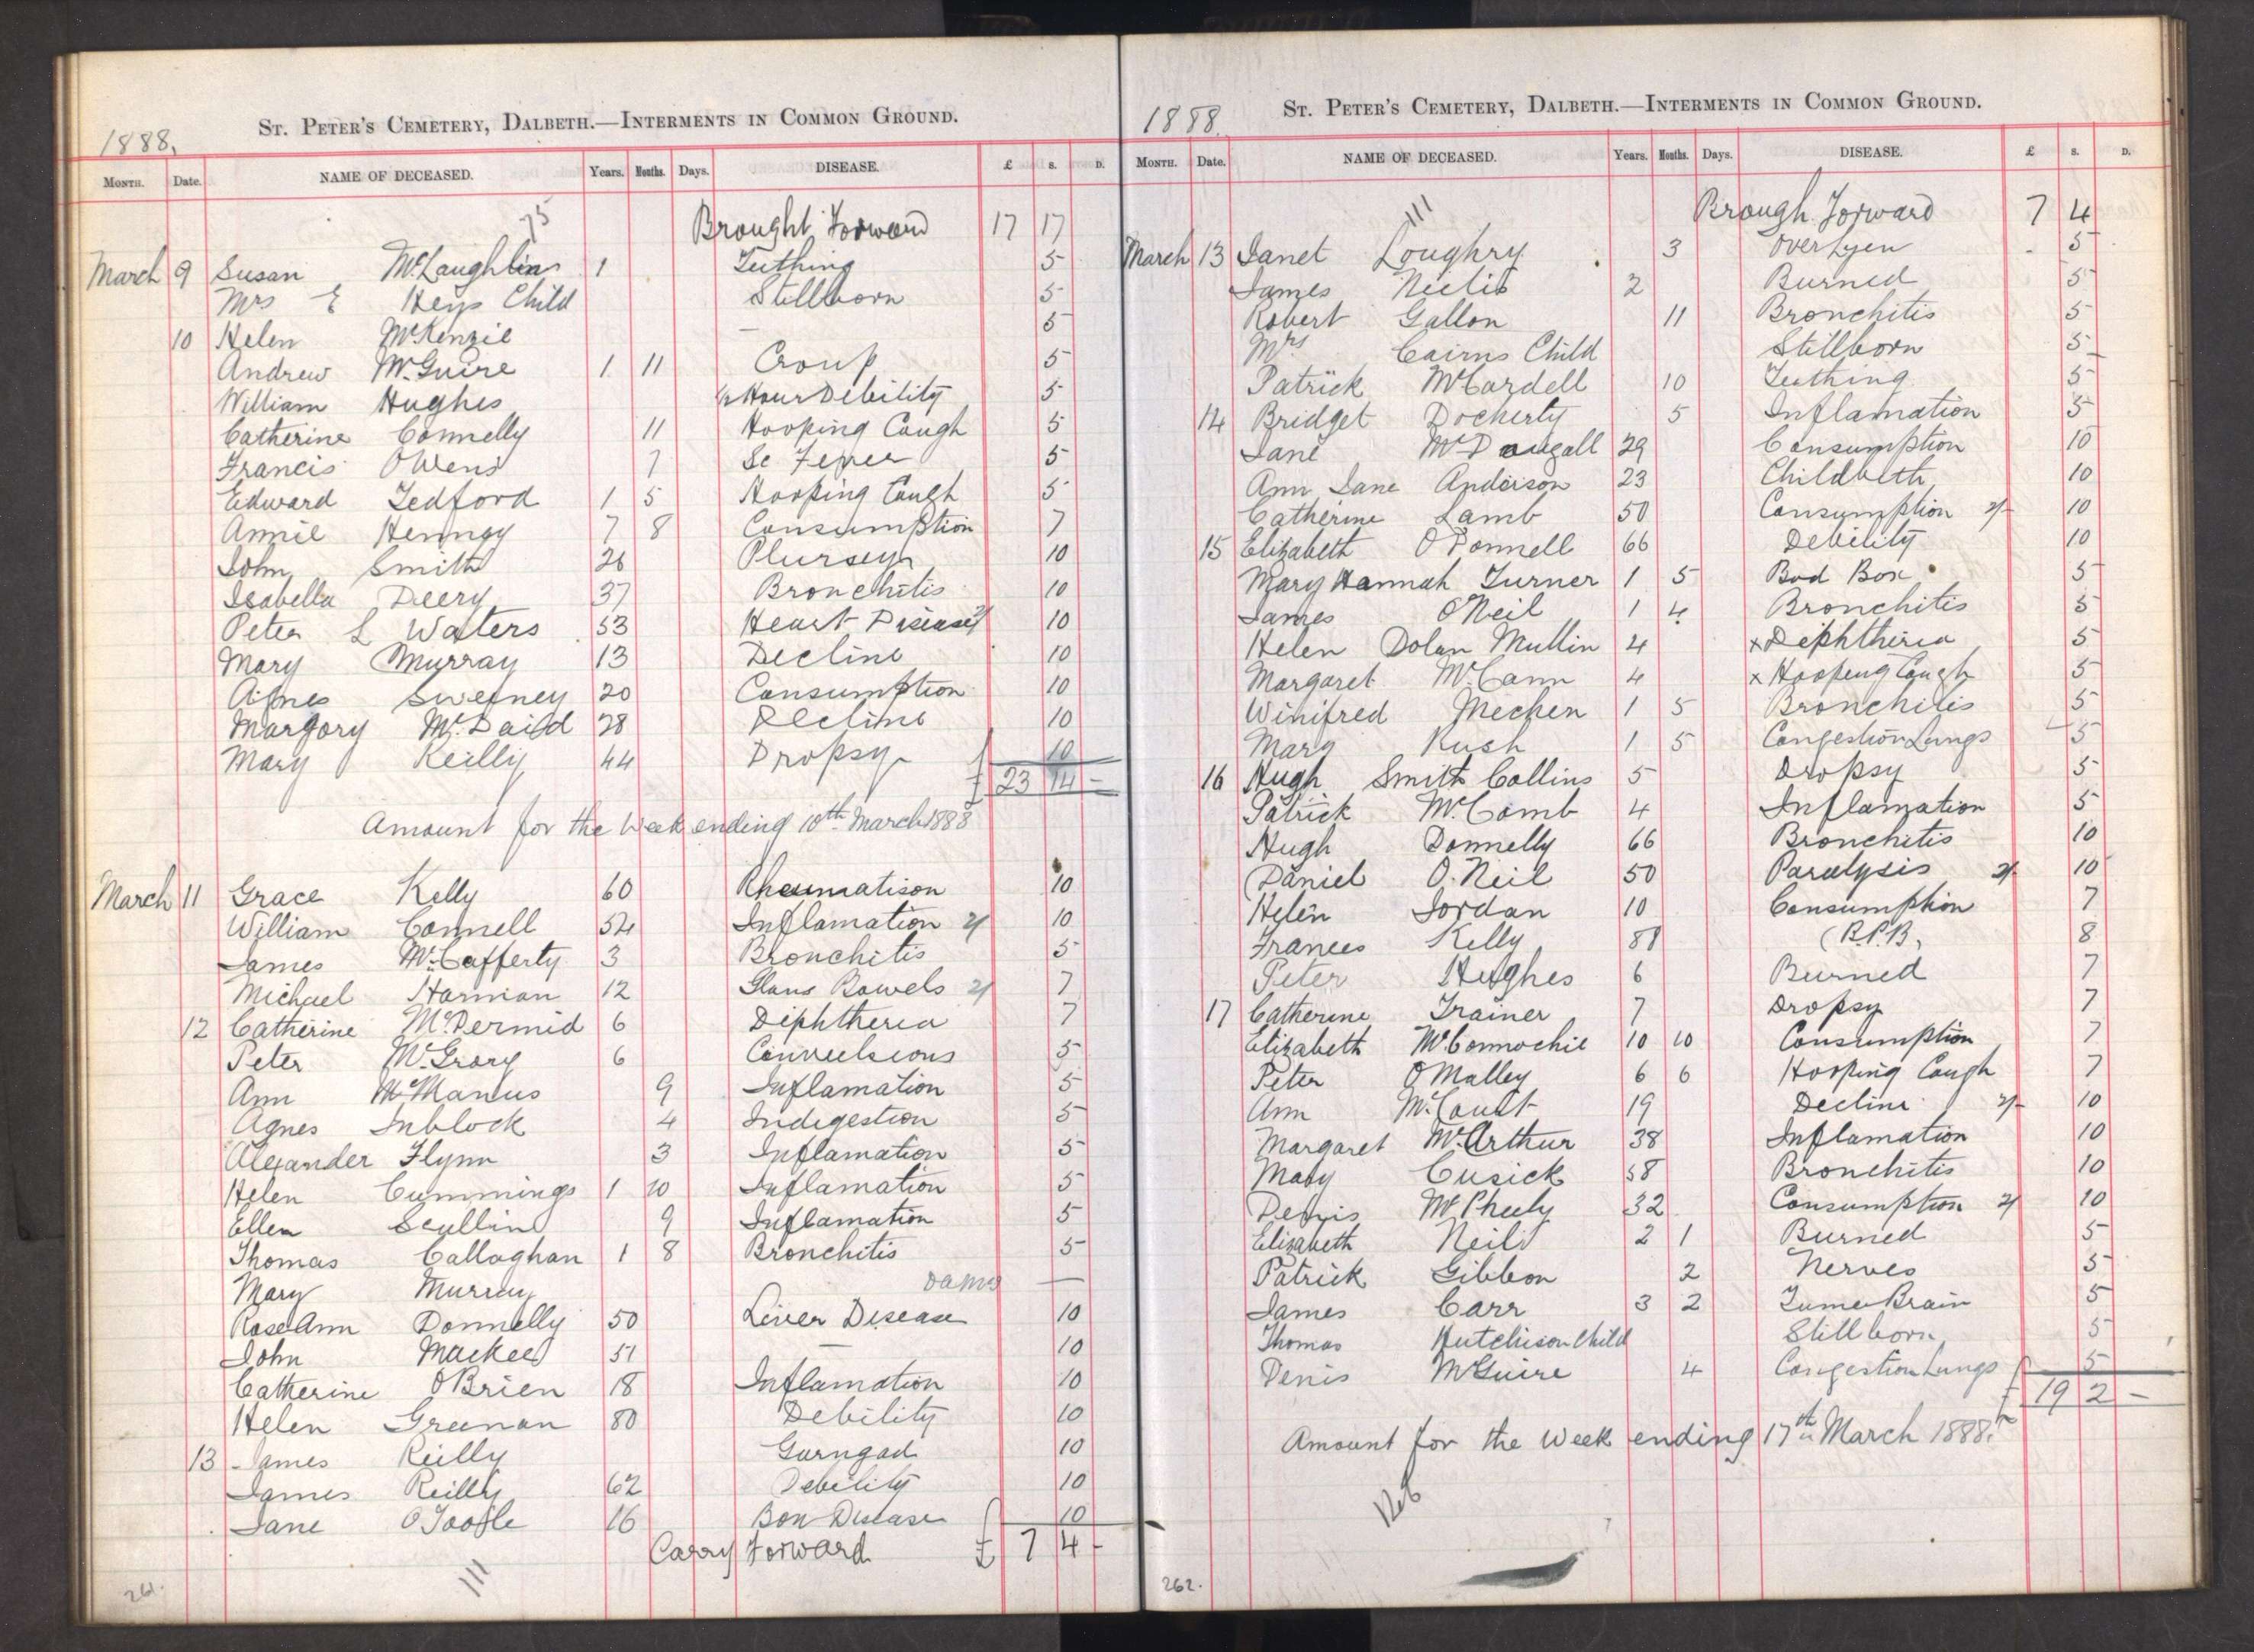 1888.
ST. PETER'S CEMETERY, DALBETH.—INTERMENTS IN COMMON GROUND.
MONTH. Date. NAME OF DECEASED. Years. Months. Days. DISEASE. £ s. D.
75 Brought Forward 17 17
March 9 Susan McLaughlin 1 Teething 5
Mrs E Heys Child Stillborn 5
10 Helen McKenzie — 5
Andrew McGuire 1 11 Croup 5
William Hughes Hour Debility 5
Catherine Connelly 11 Hooping Cough 5
Francis OWens 7 Sc Fever 5
Edward Tedford 1 5 Hooping Cough 5
Annie Henngy 7 8 Consumption 7
John Smith 26 Plursey 10
Isabella Deery 37 Bronchitis 10
Peter L Waters 53 Heart Disease 2/ 10
Mary Murray 13 Decline 10
Agnes Sweeney 20 Consumption 10
Margory McDaid 28 Decline 10
Mary Reilly 44 Dropsy 10
£ 23 14 –
Amount for the Week ending 10th March 1888
March 11 Grace Kelly 60 Rheumatison 10
William Connell 54 Inflamation 2/ 10
James McCafferty 3 Bronchitis 5
Michael Harman 12 Bowels 2/ 7
12 Catherine McDermid 6 Diphtheria 7
Peter McGrory 6 Convulsions 5
Ann McManus 9 Inflamation 5
Agnes Inblock 4 Indigestion 5
Alexander Flynn 3 Inflamation 5
Helen Cummings 1 10 Inflamation 5
Ellen Scullin 9 Inflamation 5
Thomas Callaghan 1 8 Bronchitis 5
Mary Murray —
RoseAnn Donnelly 50 Liver Disease 10
John Mackee 51 — 10
Catherine OBrien 18 Inflamation 10
Helen Greenan 80 Debility 10
13 James Reilly Garngad 10
James Reilly 62 Debility 10
Jane OToole 16 Bon Disease 10
Carry Forward £ 7 4 –
111
261.
1888.
ST. PETER'S CEMETERY, DALBETH.—INTERMENTS IN COMMON GROUND.
MONTH. Date. NAME OF DECEASED. Years. Months. Days. DISEASE. £ s. D.
111 Brough Forward 7 4
March 13 Janet Loughry 3 Overlyen 5
James Neelis 2 Burned 5
Robert Gallon 11 Bronchitis 5
Mrs Cairns Child Stillborn 5
Patrick McCardell 10 Teething 5
14 Bridget Docherty 5 Inflamation 5
Jane McDougall 29 Consumption 10
Ann Jane Anderson 23 Childbeth 10
Catherine Lamb 50 Consumption 2/- 10
15 Elizabeth ODonnell 66 Debility 10
Mary Hannah Turner 1 5 Bad Box 5
James ONeil 1 4 Bronchitis 5
Helen Dolan Mullin 4 x Dephtheria 5
Margaret McCann 4 x Hoopeng Cough 5
Winifred Mechen 1 5 Bronchitis 5
Mary Rush 1 5 Congestion Lungs 5
16 Hugh Smith Collins 5 Dropsy 5
Patrick McComb 4 Inflamation 5
Hugh Donnelly 66 Bronchitis 10
Daniel O.Neil 50 Paralysis 2/- 10
Helen Jordan 10 Consumption 7
Frances Kelly 81 (B.P.B, 8
Peter Hughes 6 Burned 7
17 Catherine Trainer 7 Dropsy 7
Elizabeth McConnochie 10 10 Consumption 7
Peter OMalley 6 6 Hooping Cough 7
Ann McCourt 19 Decline 2/- 10
Margaret McArthur 38 Inflamation 10
Mary Cusick 58 Bronchitis 10
Denis McPheely 32 Consumption 2/ 10
Elizabeth Neil 2 1 Burned 5
Patrick Gibbon 2 Nerves 5
James Carr 3 2 Tumer Brain 5
Thomas Hutchison Child Stillborn 5
Denis McGuire 4 Congestion Lungs 5
£ 19 2 –
Amount for the Week ending 17th March 1888.
126
262.